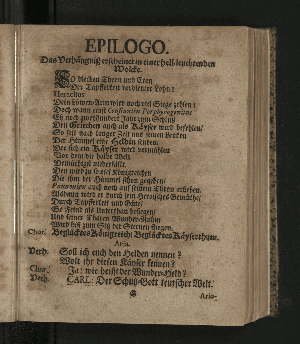 EPILOGO.
Das Verhängniß erscheinet in einer hell-leuchtenden
Wolcke.
SO blecken Thron und Cron
Der Tapfferkeit verdienter Lohn!
Heraclius
Dein Löwen-Arm wird noch viel Siege zehlen:
Doch wann einst Constantin Porphyrogenitus
Es noch zweyhundert Jahr zum Schluß
Den Griechen auch als Käyser wird befehlen/
So soll nach langer Zeit aus seinem Enden
Der Himmel eine Heldin senden
Der sich ein Käyser wird vermählen
Vor dem die halbe Welt
Demüthigst niederfällt.
Den wird zu so viel Königreichen
Die ihm der Himmel schon gegeben/
Pannonien auch noch auf seinen Thron erheben.
Alsdenn wird er durch sein Hertzliches Gemüthe/
Durch Tapfferkeit und Güte/
So Feind als Unterthan besiegen/
Und seiner Thaten Wunder-Ruhm
Wird biß zum Sitz der Sternen fliegen.
Chor. Beglücktes Königreich! Beglücktes Käyserthum.
Aria.
Verh. Soll ich euch den Helden nennen?
Wolt ihr diesen Käyser kennen?
Chor. Ja: wie heißt der Wunder-Held?
Verh. CARL: Der Schutz-Gott teutscher Welt.
Aria-